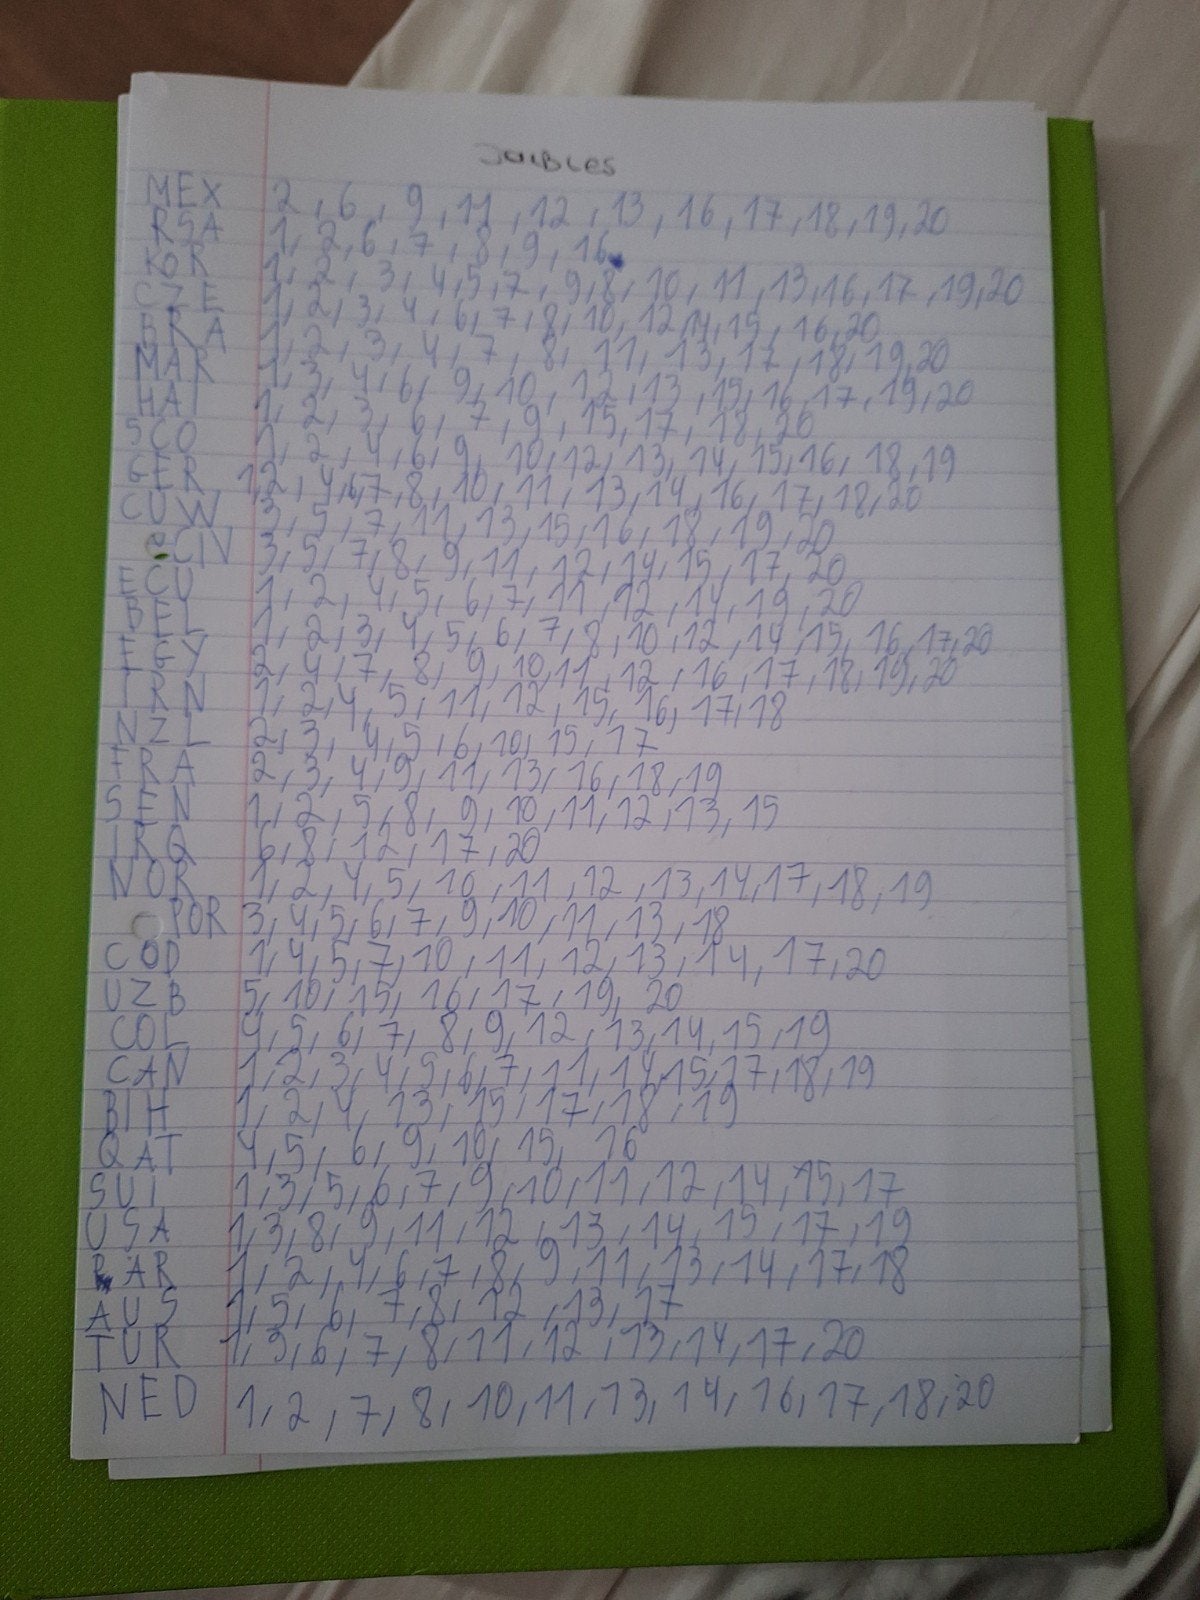 DOUBLES
MEX 2, 6, 9, 11, 12, 13, 16, 17, 18, 19, 20
RSA 1, 2, 6, 7, 8, 9, 16
KOR 1, 2, 3, 4, 5, 7, 9, 8, 10, 11, 13, 16, 17, 19, 20
CZE 1, 2, 3, 4, 6, 7, 8, 10, 12, 14, 15, 16, 20
BRA 1, 2, 3, 4, 7, 8, 11, 13, 17, 18, 19, 20
MAR 1, 3, 4, 6, 9, 10, 12, 13, 15, 16, 17, 19, 20
HAI 1, 2, 3, 6, 7, 9, 15, 17, 18, 20
SCO 1, 2, 4, 6, 9, 10, 12, 13, 14, 15, 16, 18, 19
GER 1, 2, 4, 6, 7, 8, 10, 11, 13, 14, 16, 17, 18, 20
CUW 3, 5, 7, 11, 13, 15, 16, 18, 19, 20
CIV 3, 5, 7, 8, 9, 11, 12, 14, 15, 17, 20
ECU 1, 2, 4, 5, 6, 7, 11, 12, 14, 19, 20
BEL 1, 2, 3, 4, 5, 6, 7, 8, 10, 12, 14, 15, 16, 17, 20
EGY 2, 4, 7, 8, 9, 10, 11, 12, 16, 17, 18, 19, 20
IRN 1, 2, 4, 5, 11, 12, 15, 16, 17, 18
NZL 2, 3, 4, 5, 6, 10, 15, 17
FRA 2, 3, 4, 9, 11, 13, 16, 18, 19
SEN 1, 2, 5, 8, 9, 10, 11, 12, 13, 15
IRQ 6, 8, 12, 17, 20
NOR 1, 2, 4, 5, 10, 11, 12, 13, 14, 17, 18, 19
POR 3, 4, 5, 6, 7, 9, 10, 11, 13, 18
COD 1, 4, 5, 7, 10, 11, 12, 13, 14, 17, 20
UZB 5, 10, 15, 16, 17, 19, 20
COL 4, 5, 6, 7, 8, 9, 12, 13, 14, 15, 19
CAN 1, 2, 3, 4, 5, 6, 7, 11, 14, 15, 17, 18, 19
BIH 1, 2, 4, 13, 15, 17, 18, 19
QAT 4, 5, 6, 9, 10, 15, 16
SUI 1, 3, 5, 6, 7, 9, 10, 11, 12, 14, 15, 17
USA 1, 3, 8, 9, 11, 12, 13, 14, 15, 17, 19
PAR 1, 2, 4, 6, 7, 8, 9, 11, 13, 14, 17, 18
AUS 1, 5, 6, 7, 8, 12, 13, 17
TUR 1, 3, 6, 7, 8, 11, 12, 13, 14, 17, 20
NED 1, 2, 7, 8, 10, 11, 13, 14, 16, 17, 18, 20